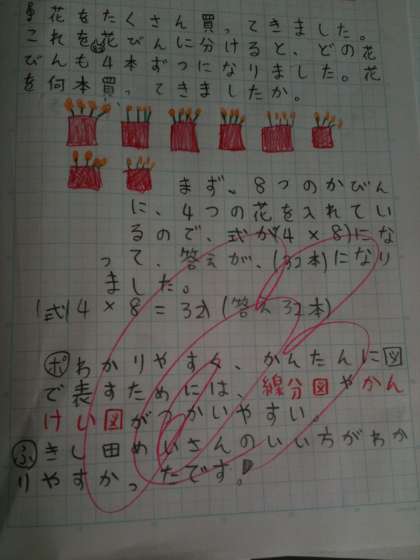 花をたくさん買ってきました。
これを花びんに分けると、どの花
びんも4本ずつになりました。花
を何本買ってきましたか。
まず。8つのかびん
に、4つの花を入れてい
るので、式が(4×8)にな
って、答えが、(32本)になり
ました。
(式)4×8=32 (答え32本)
ポわかりやすく、かんたんに図
で表すためには、線分図やかん
けい図がつかいやすい。
ふきし田めいさんのいい方がわか
りやすかったです。